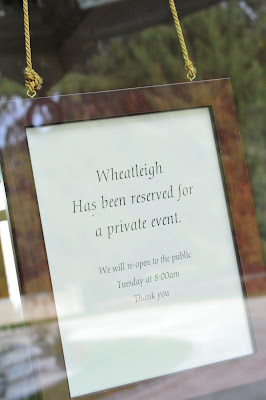 Wheatleigh
Has been reserved for
a private event.
We will re-open to the public
Tuesday at 8:00am
Thank you